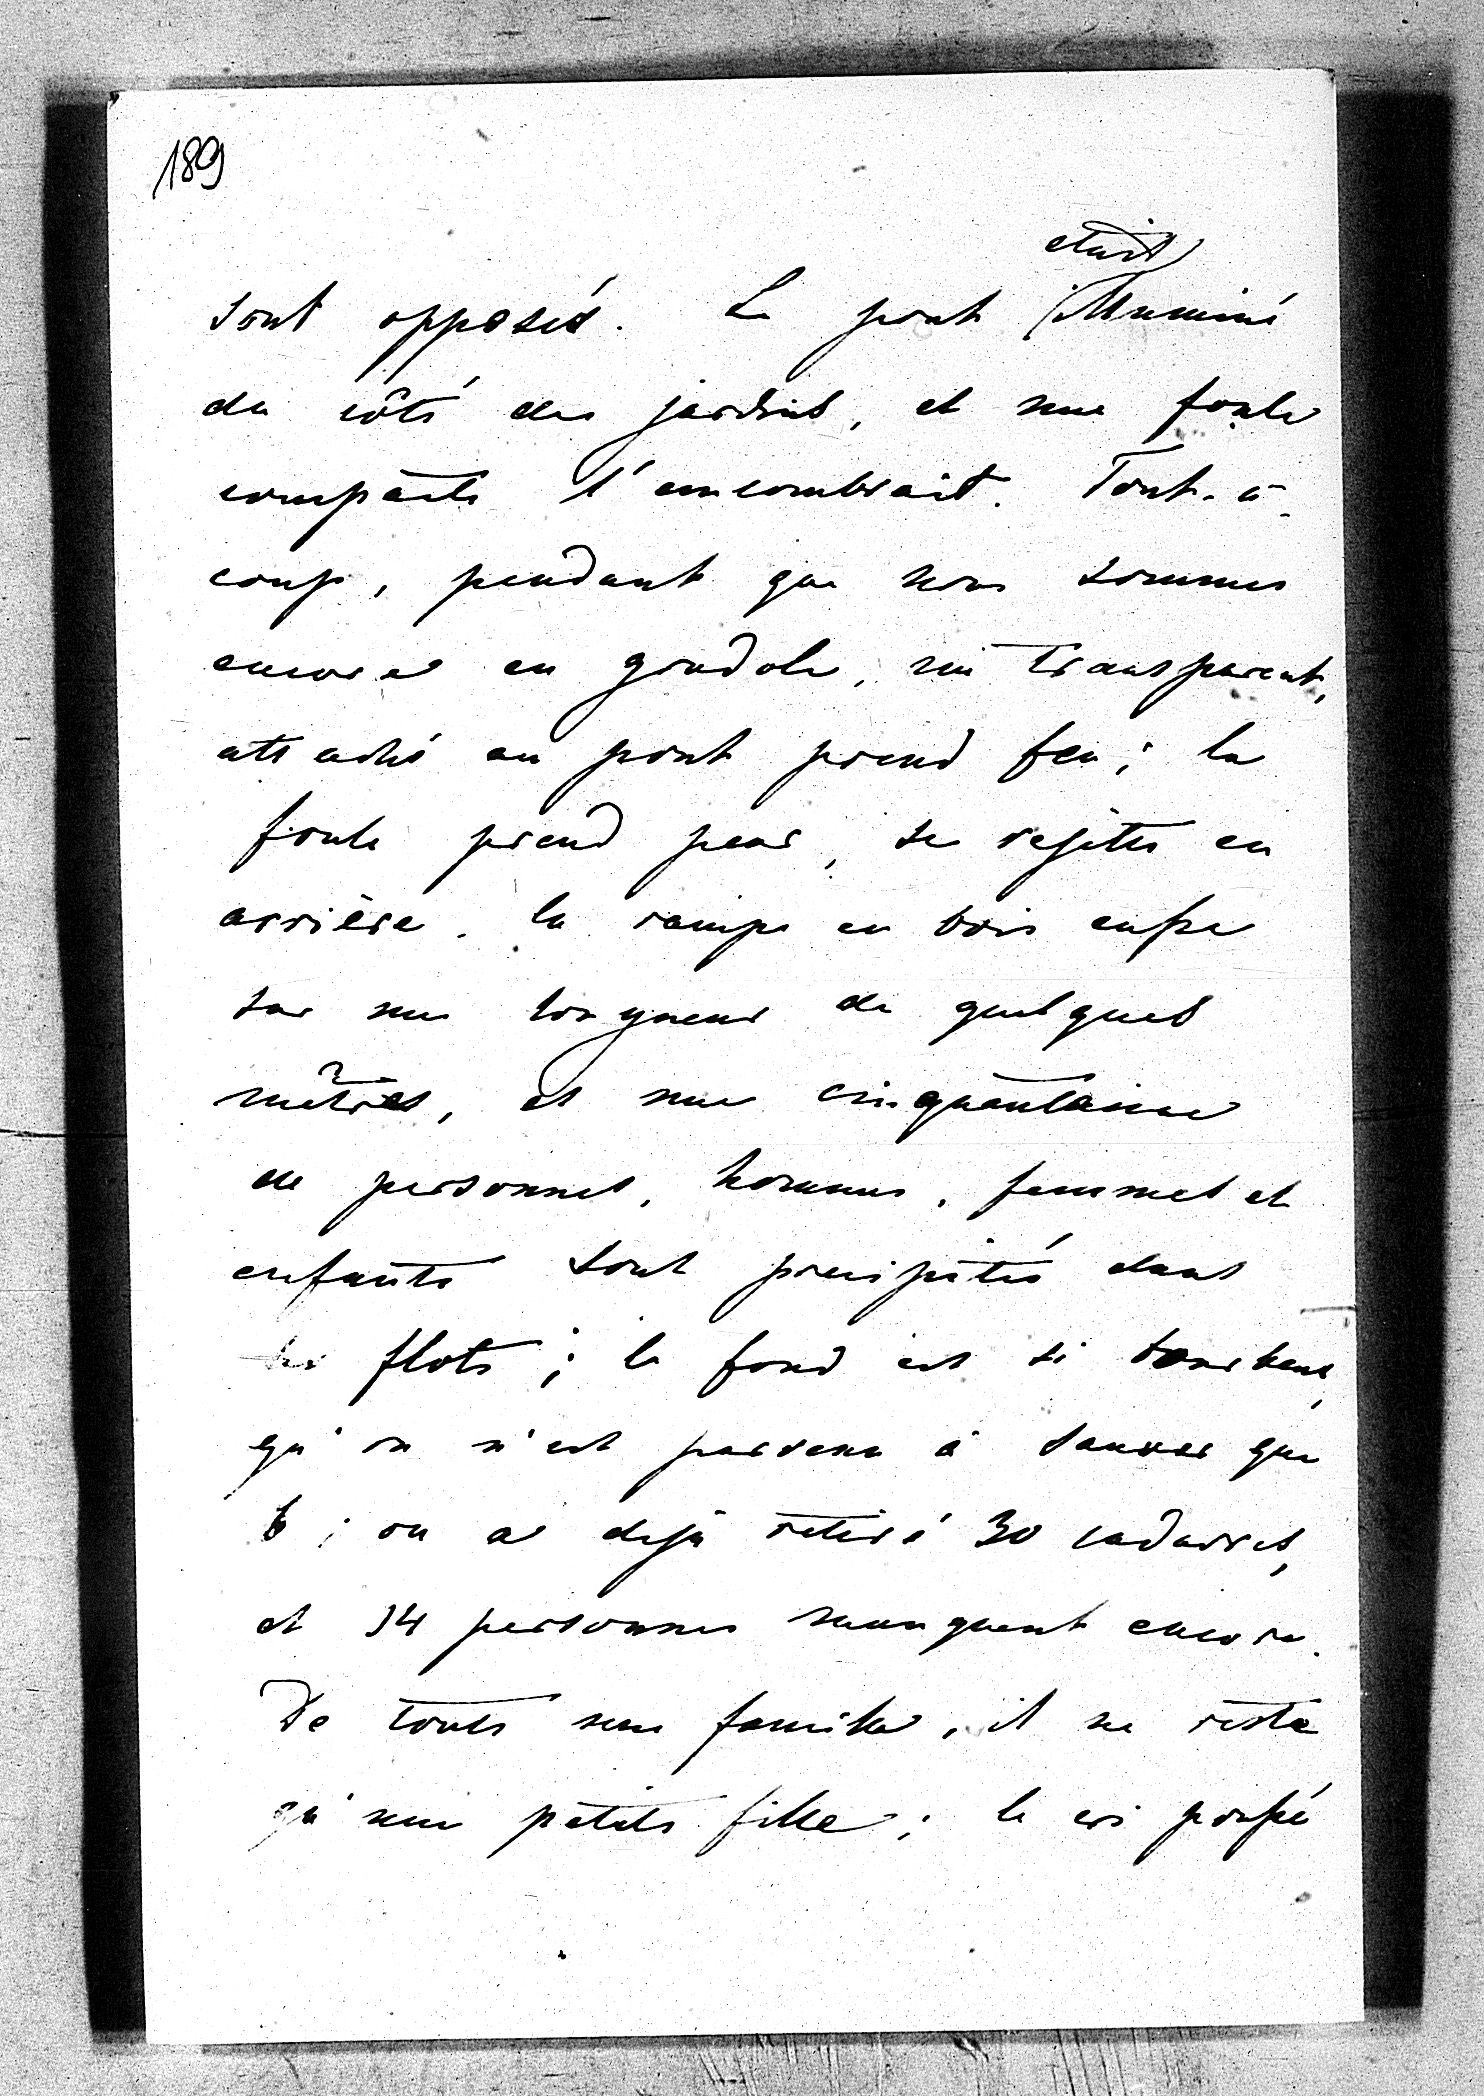 189
sont opposés. Le pont était illuminé
du côté des jardins, et une foule
compacte l'encombrait. Tout-à-
coup, pendant que nous sommes
encore en gondole, un transparent,
attaché au pont prend feu ; la
foule prend peur, se rejette en
arrière. la rampe en bois casse
sur une longueur de quelques
mètres, et une cinquantaine
de personnes, hommes, femmes et
enfants sont précipités dans
les flots ; le fond est si bourbeux,
qu'on n'est parvenu à sauver que
6 ; on a déjà retiré 30 cadavres,
et 14 personnes manquent encore.
De toute une famille, il ne reste
qu'une petite fille ; le cri poussé